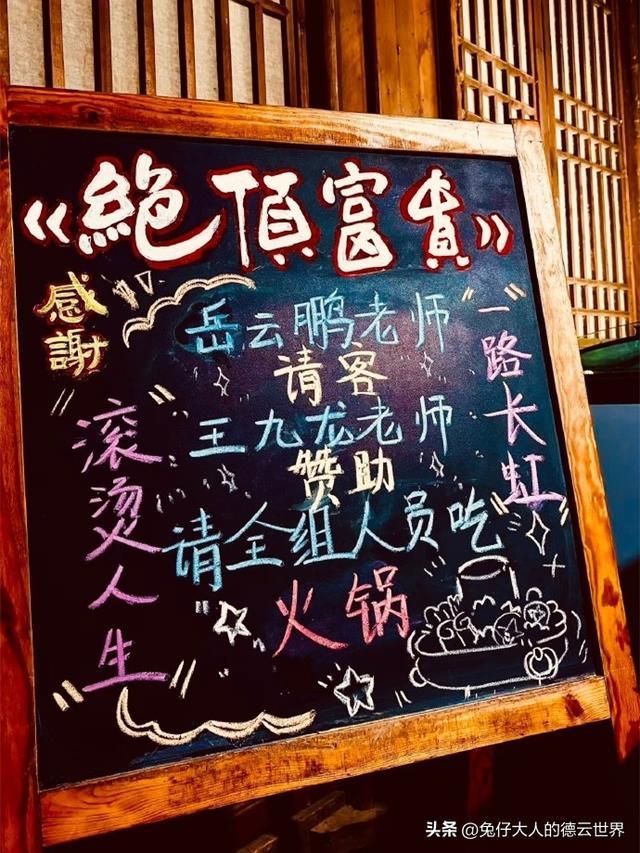 《絶頂富貴》
感謝
岳云鹏老师
请客
王九龙老师
赞助
请全组人员吃
火锅
"滚烫人生"
"一路长虹"
头条 @兔仔大人的德云世界